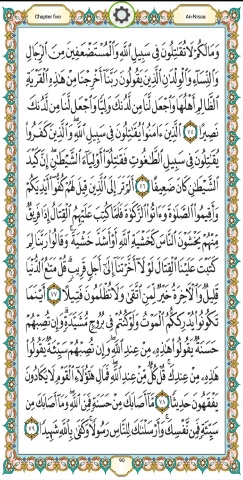 Chapter five
An-Nisaa
وَمَا لَكُمْ لَا تُقَٰتِلُونَ فِي سَبِيلِ ٱللَّهِ وَٱلْمُسْتَضْعَفِينَ مِنَ ٱلرِّجَالِ
وَٱلنِّسَآءِ وَٱلْوِلْدَٰنِ ٱلَّذِينَ يَقُولُونَ رَبَّنَآ أَخْرِجْنَا مِنْ هَٰذِهِ ٱلْقَرْيَةِ
ٱلظَّالِمِ أَهْلُهَا وَٱجْعَل لَّنَا مِن لَّدُنكَ وَلِيًّا وَٱجْعَل لَّنَا مِن لَّدُنكَ
نَصِيرًا ٧٥ ٱلَّذِينَ ءَامَنُوا۟ يُقَٰتِلُونَ فِي سَبِيلِ ٱللَّهِ وَٱلَّذِينَ كَفَرُوا۟
يُقَٰتِلُونَ فِي سَبِيلِ ٱلطَّٰغُوتِ فَقَٰتِلُوٓا۟ أَوْلِيَآءَ ٱلشَّيْطَٰنِ إِنَّ كَيْدَ
ٱلشَّيْطَٰنِ كَانَ ضَعِيفًا ٧٦ أَلَمْ تَرَ إِلَى ٱلَّذِينَ قِيلَ لَهُمْ كُفُّوٓا۟ أَيْدِيَكُمْ
وَأَقِيمُوا۟ ٱلصَّلَوٰةَ وَءَاتُوا۟ ٱلزَّكَوٰةَ فَلَمَّا كُتِبَ عَلَيْهِمُ ٱلْقِتَالُ إِذَا فَرِيقٌ
مِّنْهُمْ يَخْشَوْنَ ٱلنَّاسَ كَخَشْيَةِ ٱللَّهِ أَوْ أَشَدَّ خَشْيَةً وَقَالُوا۟ رَبَّنَا لِمَ
كَتَبْتَ عَلَيْنَا ٱلْقِتَالَ لَوْلَآ أَخَّرْتَنَآ إِلَىٰٓ أَجَلٍ قَرِيبٍ قُلْ مَتَٰعُ ٱلدُّنْيَا
قَلِيلٌ وَٱلْءَاخِرَةُ خَيْرٌ لِّمَنِ ٱتَّقَىٰ وَلَا تُظْلَمُونَ فَتِيلًا ٧٧ أَيْنَمَا
تَكُونُوا۟ يُدْرِككُّمُ ٱلْمَوْتُ وَلَوْ كُنتُمْ فِي بُرُوجٍ مُّشَيَّدَةٍ وَإِن تُصِبْهُمْ
حَسَنَةٌ يَقُولُوا۟ هَٰذِهِ مِنْ عِندِ ٱللَّهِ وَإِن تُصِبْهُمْ سَيِّئَةٌ يَقُولُوا۟
هَٰذِهِ مِنْ عِندِكَ قُلْ كُلٌّ مِّنْ عِندِ ٱللَّهِ فَمَالِ هَٰٓؤُلَآءِ ٱلْقَوْمِ لَا يَكَادُونَ
يَفْقَهُونَ حَدِيثًا ٧٨ مَّآ أَصَابَكَ مِنْ حَسَنَةٍ فَمِنَ ٱللَّهِ وَمَآ أَصَابَكَ مِن
سَيِّئَةٍ فَمِن نَّفْسِكَ وَأَرْسَلْنَٰكَ لِلنَّاسِ رَسُولًا وَكَفَىٰ بِٱللَّهِ شَهِيدًا ٧٩
90